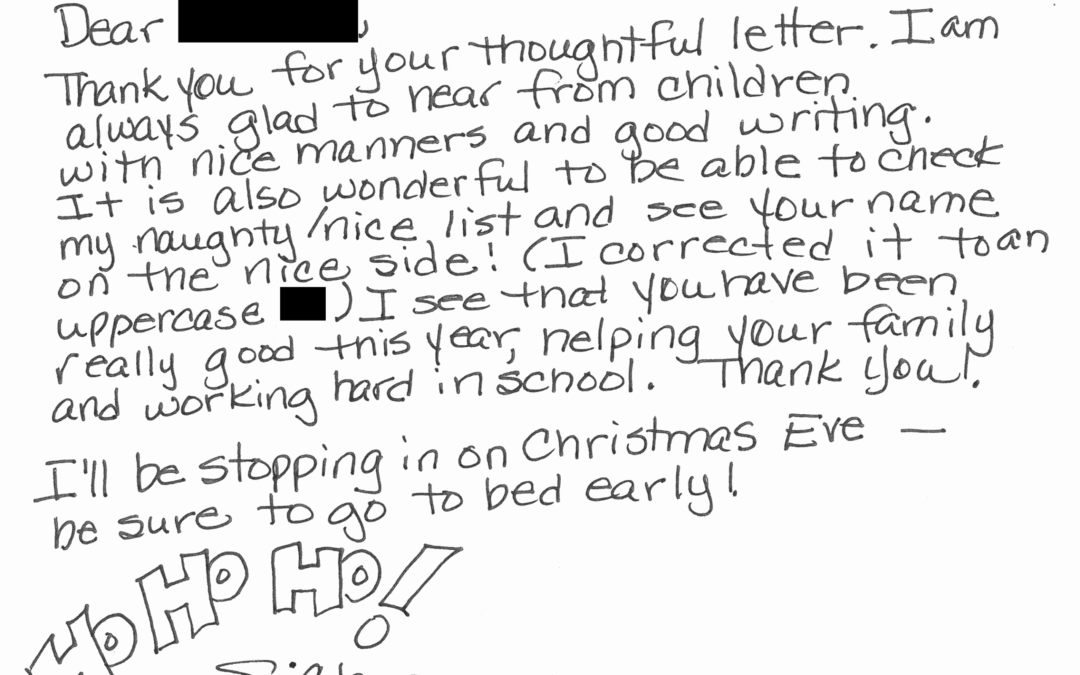 Dear
Thank you for your thoughtful letter. I am
always glad to hear from children
with nice manners and good writing.
It is also wonderful to be able to check
my naughty/nice list and see your name
on the nice side! (I corrected it to an
uppercase ) I see that you have been
really good this year, helping your family
and working hard in school. Thank you!
I'll be stopping in on Christmas Eve —
be sure to go to bed early!
HO HO HO!